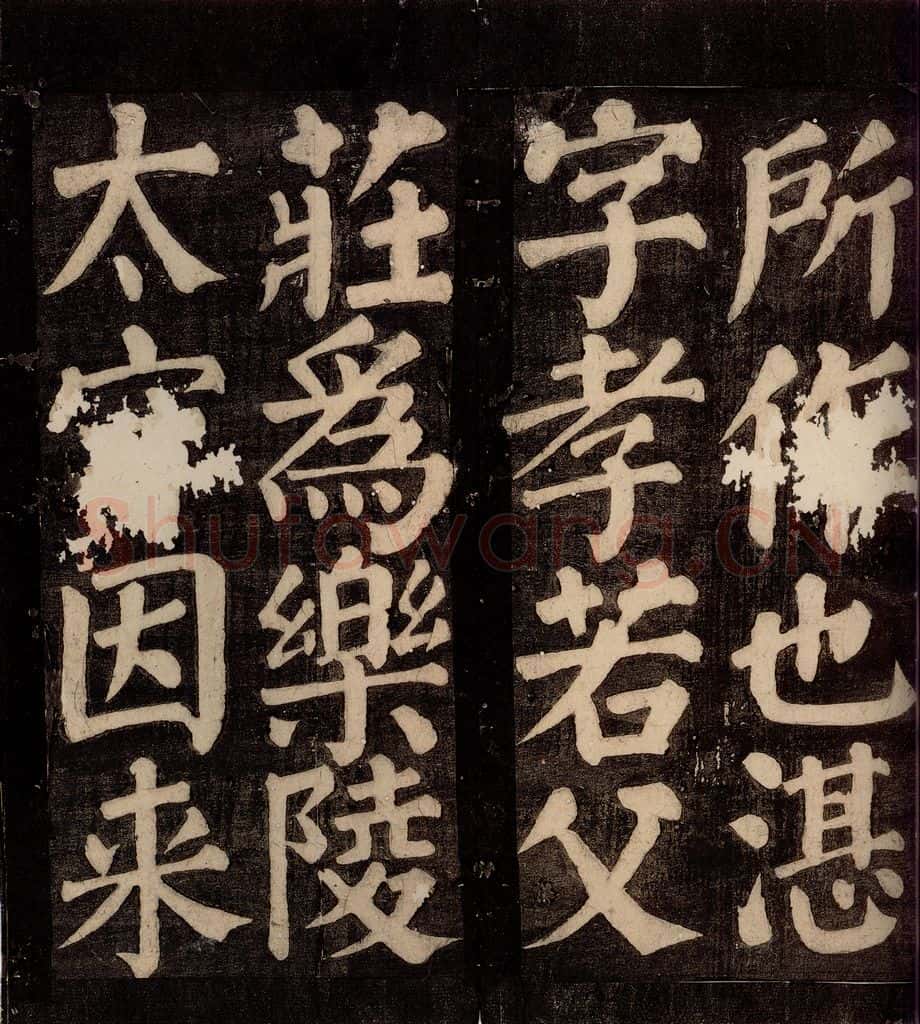 所作也湛
字孝若父
莊為樂陵
太守因来
Shufawang.CN